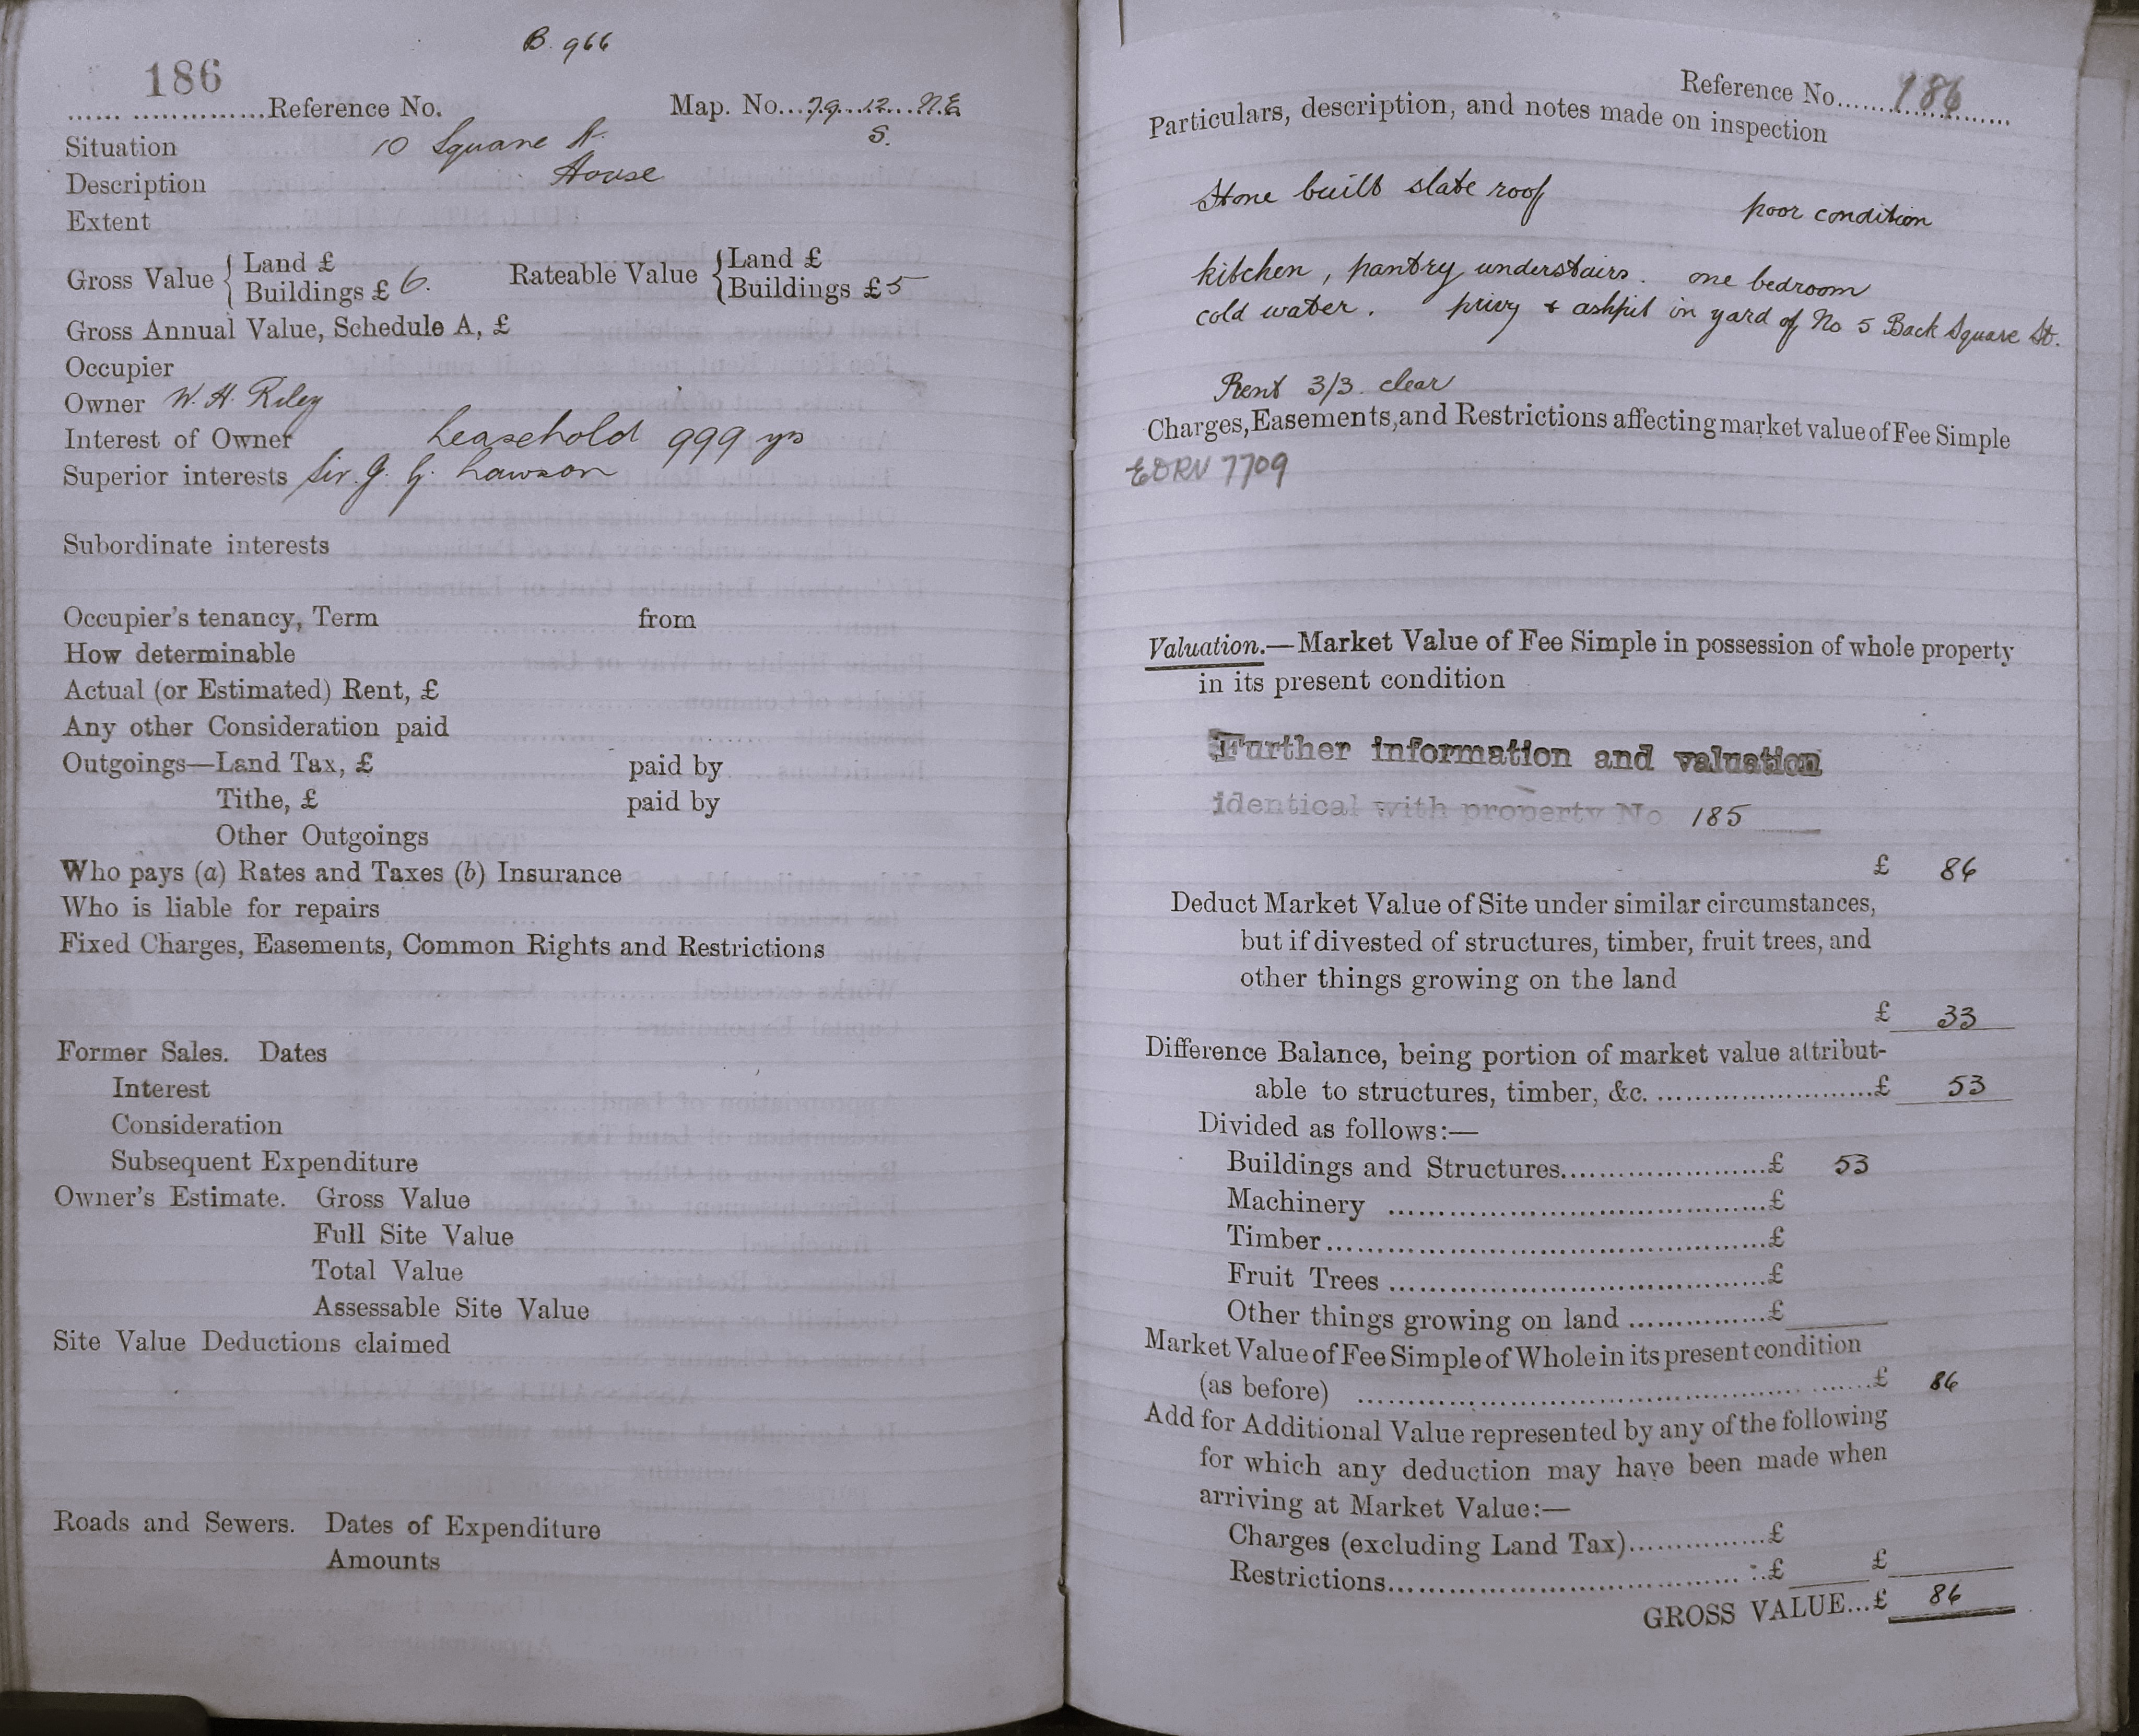 B. 966
186
Reference No. Map. No...79...12...N.E
S.
Situation 10 Square St.
Description House
Extent
Gross Value { Land £
Buildings £ 6. Rateable Value { Land £
Buildings £ 5
Gross Annual Value, Schedule A, £
Occupier
Owner W. H. Riley
Interest of Owner Leasehold 999 yrs
Superior interests Sir. J. G. Lawson
Subordinate interests
Occupier's tenancy, Term from
How determinable
Actual (or Estimated) Rent, £
Any other Consideration paid
Outgoings—Land Tax, £ paid by
Tithe, £ paid by
Other Outgoings
Who pays (a) Rates and Taxes (b) Insurance
Who is liable for repairs
Fixed Charges, Easements, Common Rights and Restrictions
Former Sales. Dates
Interest
Consideration
Subsequent Expenditure
Owner's Estimate. Gross Value
Full Site Value
Total Value
Assessable Site Value
Site Value Deductions claimed
Roads and Sewers. Dates of Expenditure
Amounts
Reference No. 186
Particulars, description, and notes made on inspection
Stone built slate roof poor condition
kitchen, pantry understairs. one bedroom
cold water. privy & ashpit in yard of No 5 Back Square St.
Rent 3/3. clear
Charges, Easements, and Restrictions affecting market value of Fee Simple
EDRV 7709
Valuation.—Market Value of Fee Simple in possession of whole property
in its present condition
Further information and valuation
identical with property No 185
£ 86
Deduct Market Value of Site under similar circumstances,
but if divested of structures, timber, fruit trees, and
other things growing on the land
£ 33
Difference Balance, being portion of market value attribut-
able to structures, timber, &c. ........................£ 53
Divided as follows:—
Buildings and Structures........................£ 53
Machinery ........................£
Timber........................£
Fruit Trees ........................£
Other things growing on land ................£
Market Value of Fee Simple of Whole in its present condition
(as before) ........................£ 86
Add for Additional Value represented by any of the following
for which any deduction may have been made when
arriving at Market Value:—
Charges (excluding Land Tax)................£
Restrictions........................£ £
GROSS VALUE...£ 86